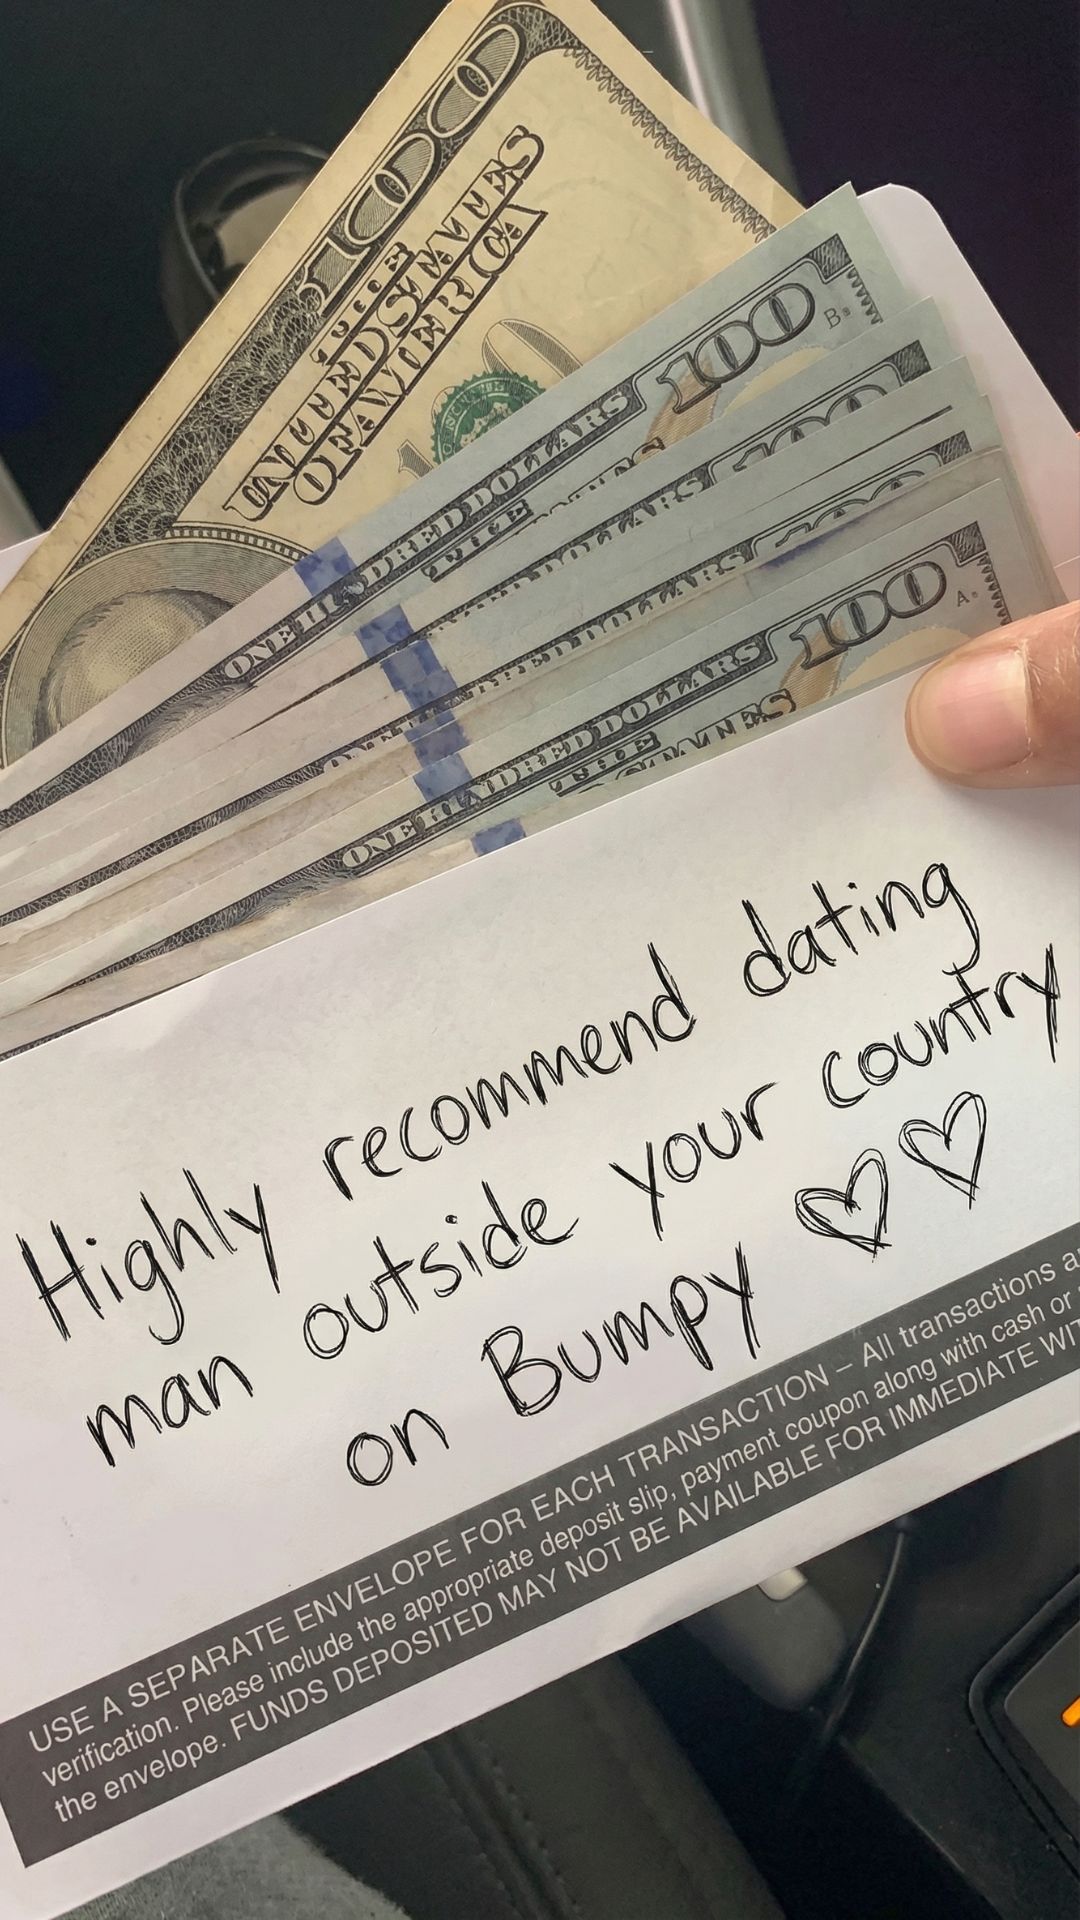 100
THE
UNITED STATES
OF AMERICA
100
B
ONE HUNDRED DOLLARS
THE
100
DOLLARS
100
DOLLARS
100
A
ONE HUNDRED DOLLARS
THE
STATES
Highly recommend dating
man outside your country
on Bumpy ♡♡
USE A SEPARATE ENVELOPE FOR EACH TRANSACTION – All transactions a
verification. Please include the appropriate deposit slip, payment coupon along with cash or
the envelope. FUNDS DEPOSITED MAY NOT BE AVAILABLE FOR IMMEDIATE WIT